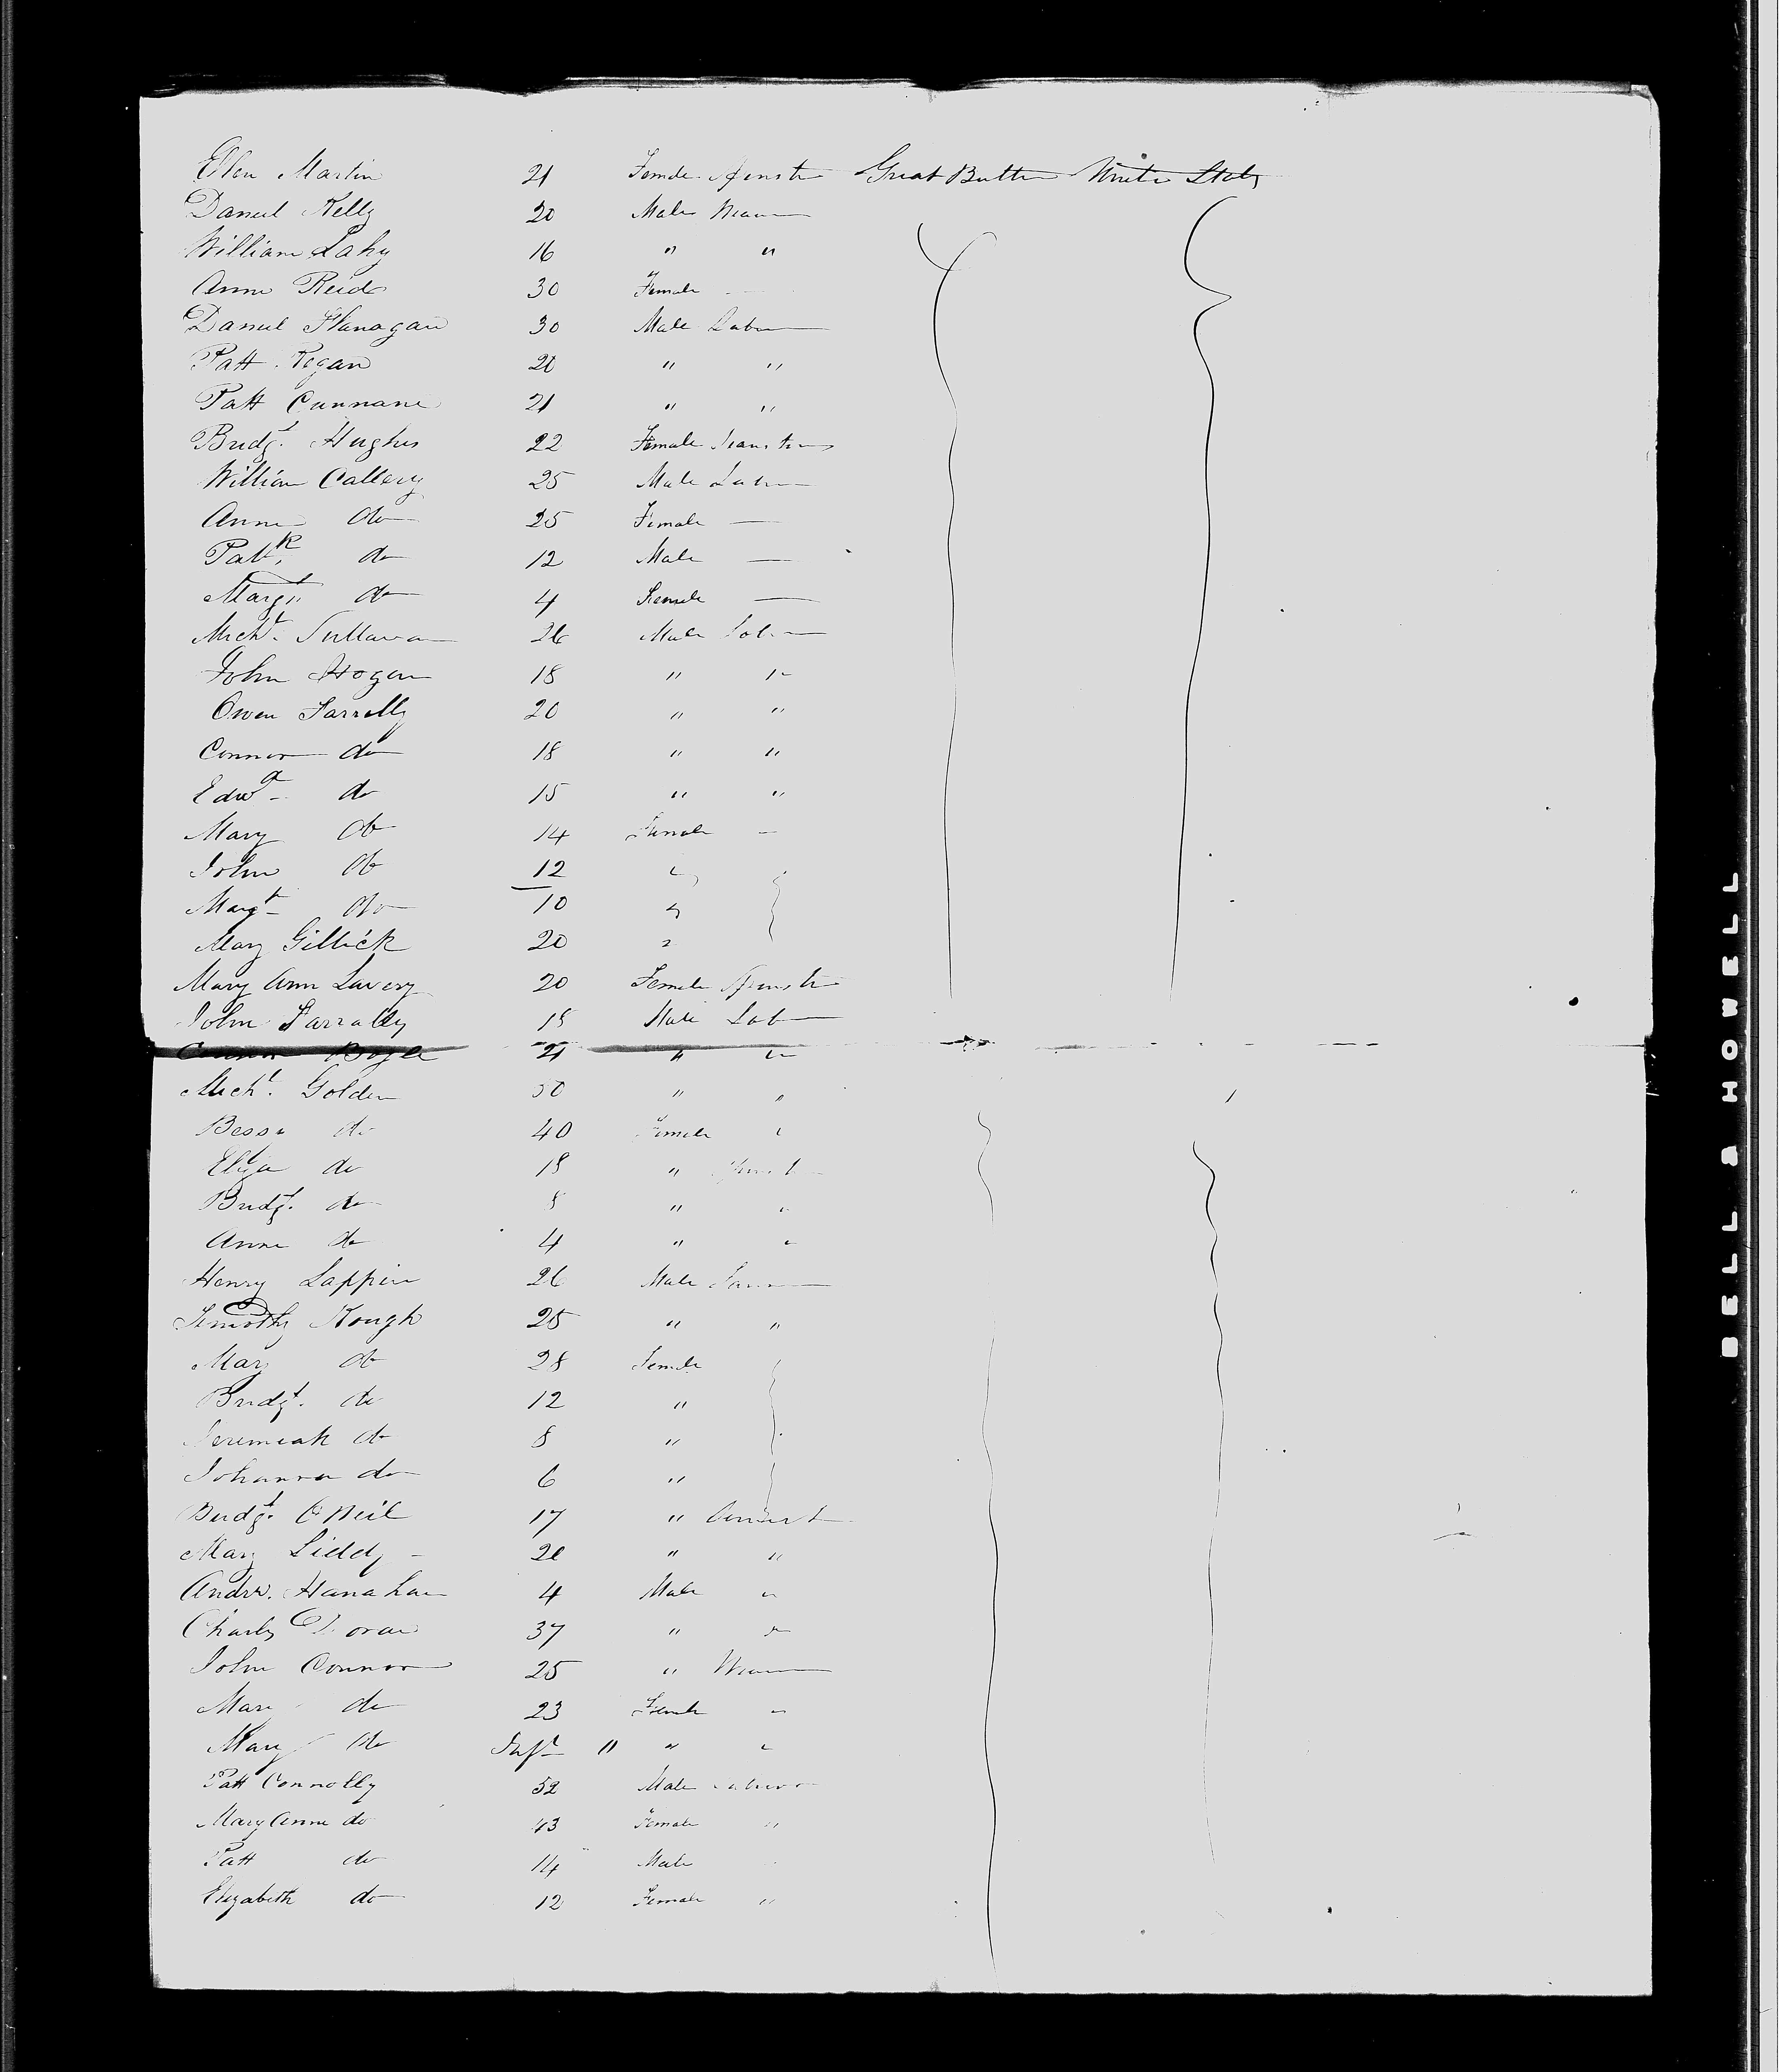 Ellen Martin 21 Female Spinster Great Britten United States
Daniel Kelly 20 Male Weaver
William Lahy 16 " "
Anne Reid 30 Female —
Daniel Flanagan 30 Male Labr
Patt Regan 20 " "
Patt Cunnane 21 " "
Bridgt. Hughes 22 Female
William Callery 25 Male Labr
Anne do 25 Female —
Pattk. do 12 Male —
Margt. do 4 Female —
Michl. Sullavan 26 Male Labr
John Hogan 18 " "
Owen Farrelly 20 " "
Connor do 18 " "
Edwd do 15 " "
Mary do 14 Female —
John do 12 "
Margt do 10 "
Mary Gillick 20 "
Mary Ann Lavery 20 Female Spinstr
John Farrally 18 Male Labr
Connor Boyle 21 " "
Michl. Golden 50 " "
Bessa do 40 Female "
Eliza do 18 " Spinst
Bridgt. do 8 " "
Anne do 4 " "
Henry Lappin 26 Male
Timothy Keough 25 " "
Mary do 28 Female
Bridgt. do 12 "
Jeremiah do 8 "
Johanna do 6 "
Bridgt. O Neil 17 "
Mary Liddy 20 " "
Andrw. Hanahan 4 Male "
Charles Doran 37 " "
John Connor 25 " Weaver
Mary do 23 Female "
Mary do Inft " " "
Patt Connolly 52 Male Labourer
Mary Anne do 43 Female "
Patt do 14 Male
Elizabeth do 12 Female "
BELL & HOWELL